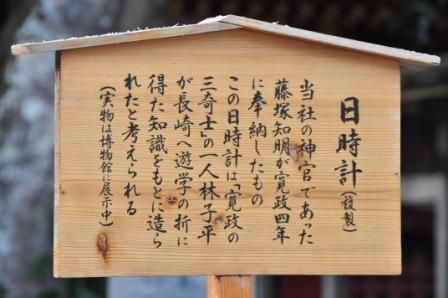 日時計(複製)
当社の神官であった
藤塚知明が寛政四年
に奉納したもの
この日時計は「寛政の
三奇士」の一人林子平
が長崎へ遊学の折に
得た知識をもとに造ら
れたと考えられる
(実物は博物館に展示中)